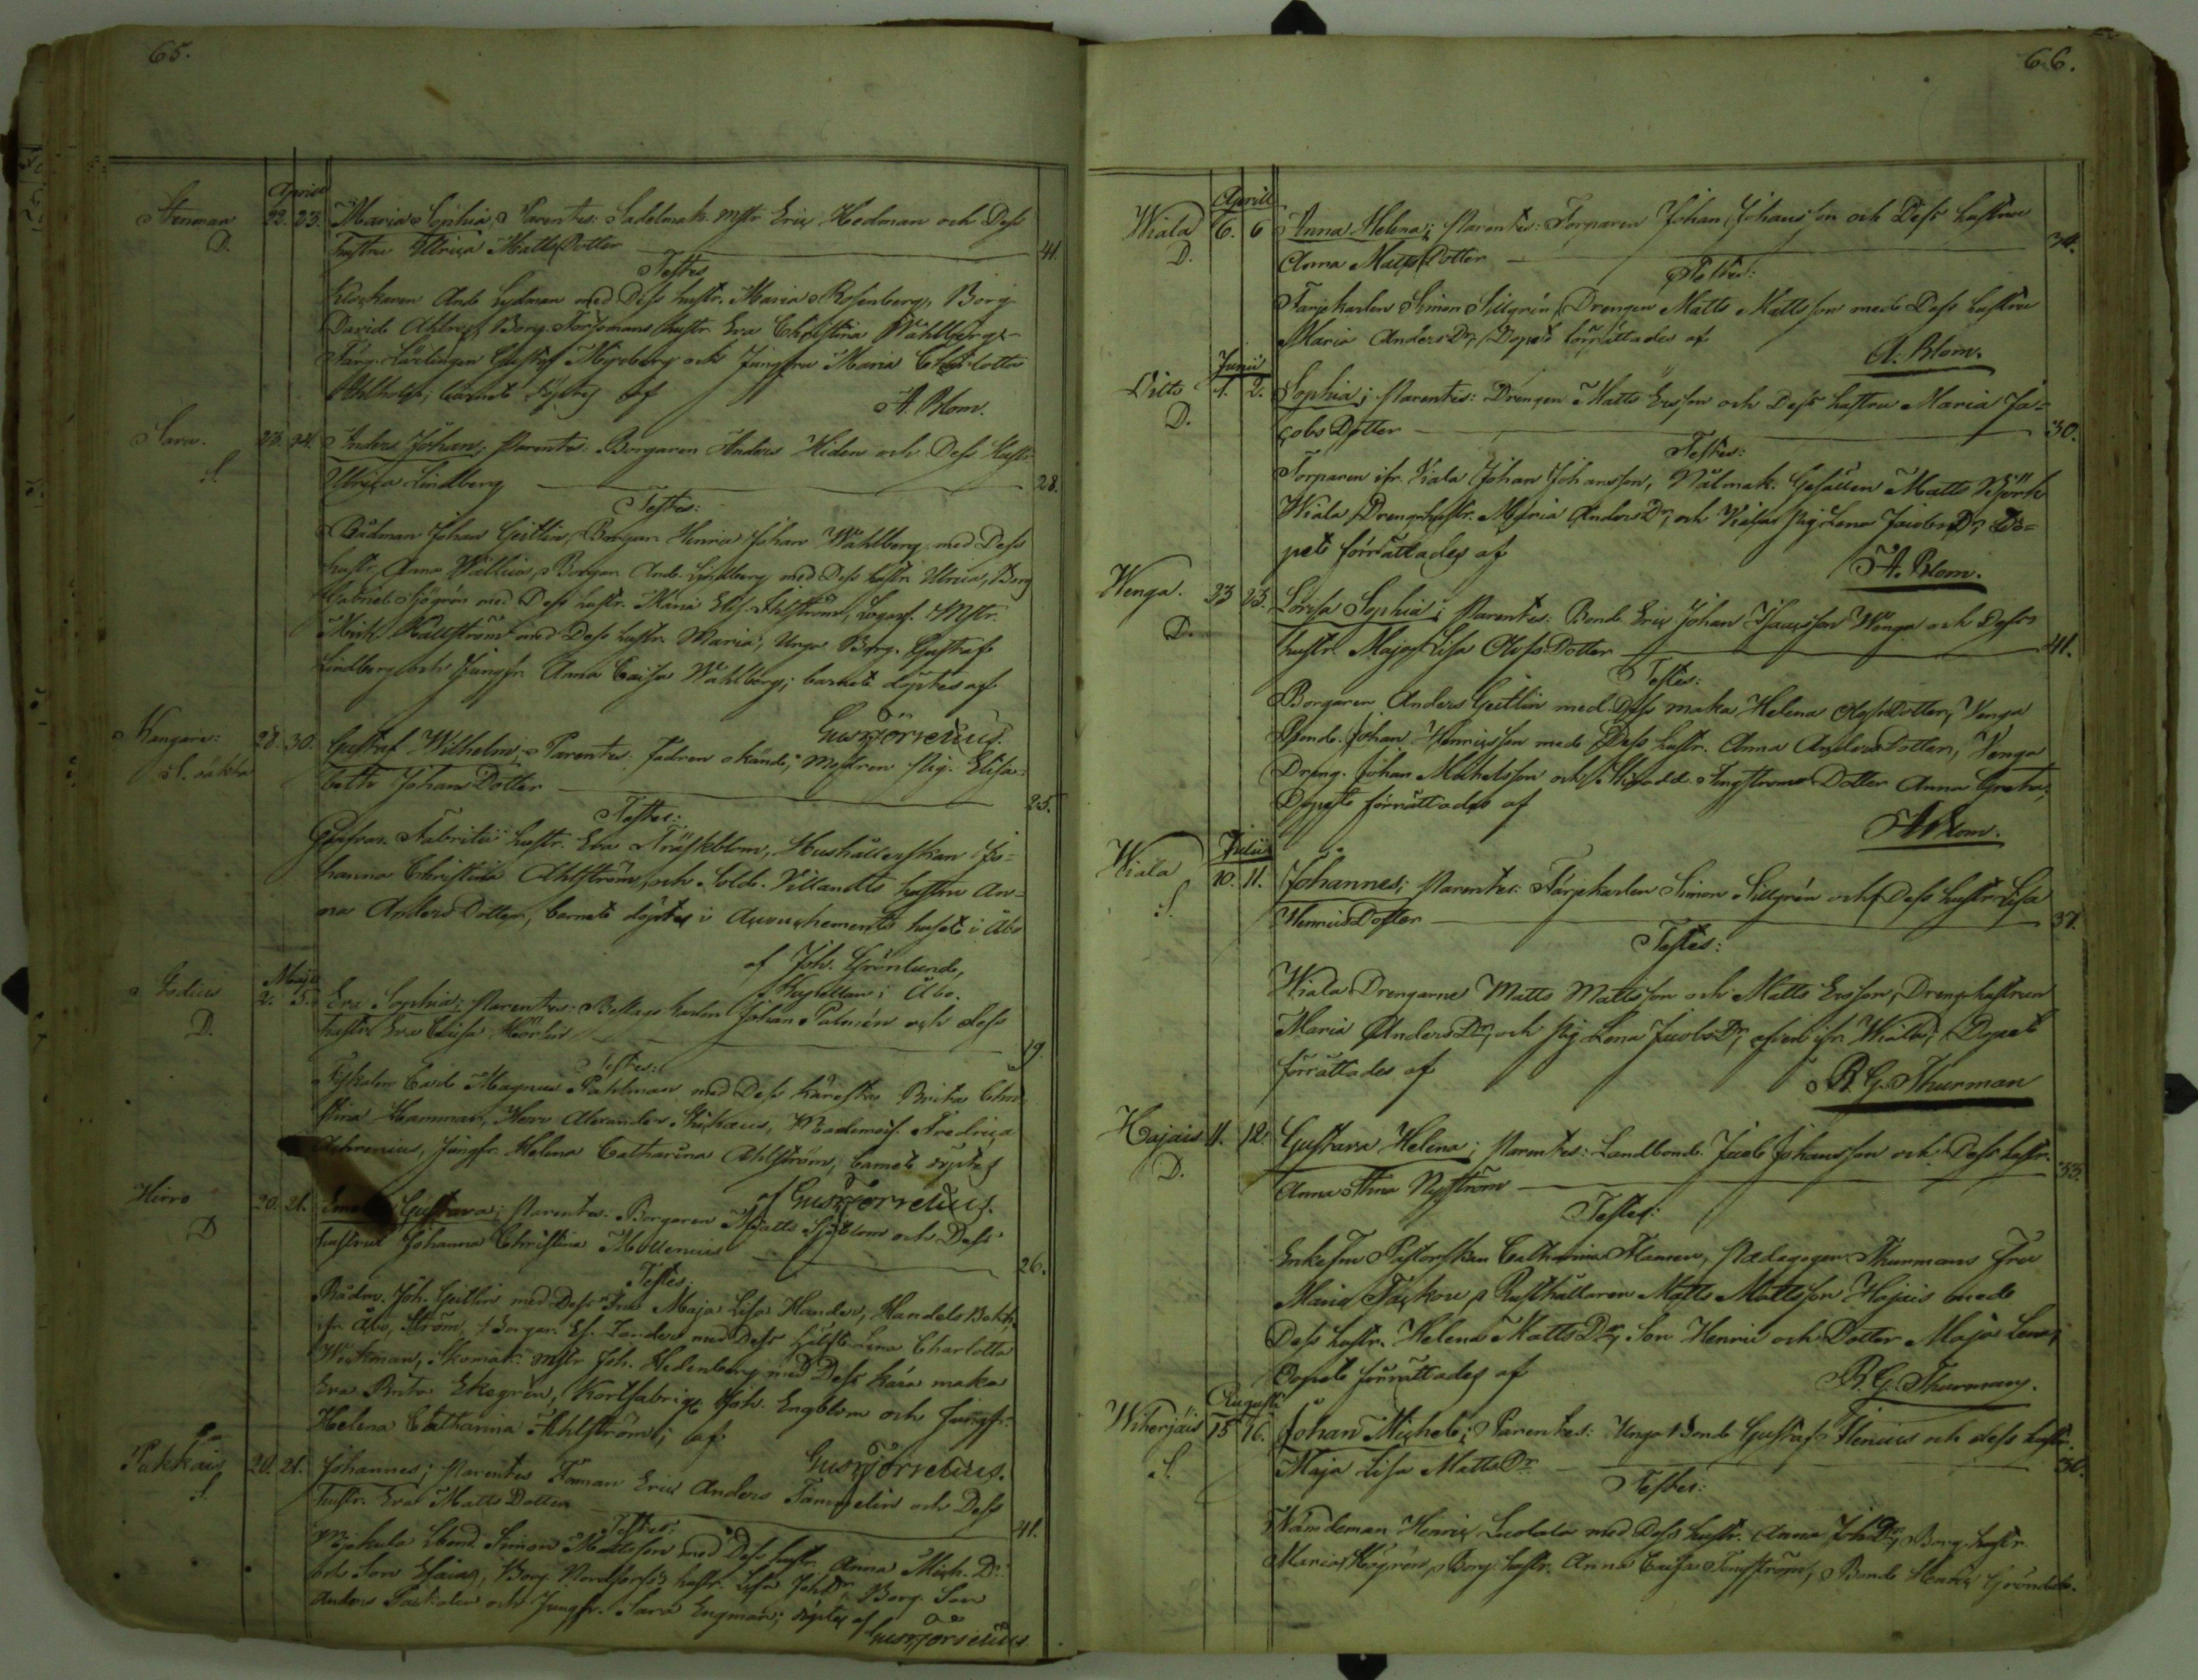 65.
Aprill
Stenman 22. 23. Maria Sophia; Parentes: Sadelmak. Mstr Eric Hedman och Dess
D. hustru Ulrica Matts Dotter 41.
Testes
Klockaren And. Lydman med Dess hustr. Maria Rosenberg, Borg.
David Ahlrot, Borg. Forsmans hustr. Eva Christina Wahlberg
Färg. Lärlingen Gustaf Myrberg och Jungfru Maria Charlotta
barnet döptes af A. Blom.
Saru. 23. 24. Anders Johan; Parentes: Borgaren Anders Widen och Dess Hustr.
S. Ulrica Lindberg 28.
Testes:
Rådman Johan Geitlin, Borgar. Henric Johan Wahlberg med Dess
hustr. Anna Wallius, Borgar. And. Lindberg med Dess hustr. Ulrica, Borg
Gabriel Sjögrén med Dess hustr. Maria Elis. Ahlström, Mstr.
Mich. Hallström med Dess hustr. Maria, Unga Borg. Gustaf
Lindberg och Jungfr. Anna Caisa Wahlberg; barnet döptes af
Kangare: 28. 30. Gustaf Wilhelm; Parentes: Fadren okänd, Modren pig. Elisa=
S. oäkta beth Johans Dotter 25.
Testes:
Fabritii hustr. Eva Träskblom, Hushållerskan Jo=
hanna Christina Ahlström, och Sold. Villandts hustru An=
na Anders Dotter, barnet döptes i Accouchements huset i Åbo
af Joh. Grönlund,
Kapellan i Åbo.
Maji
2. 5. Eva Sophia; Parentes: Betlags karlen Johan Palmén och dess
D. hustr. Eva Caisa 19.
Testes:
Fiskalen Carl Magnus Pahlman med Dess käresta Brita Chri
stina Hamman, Herr Alexander Mademois. Fredrica
Achrenius, Jungfr. Helena Catharina Ahlström, barnet döptes
af
Hirvo 20. 21. Gustava; Parentes: Borgaren Matts Sjöblom och Dess
D hustru Johanna Christina Mollenius 26.
Testes:
Rådm. Joh. Geitlin med Dess Fru Maja Lisa Hander, Handels Bokh.
ifr. Åbo, Ström, Borgar. Es. Zander med Dess Lena Charlotta
Wickman, Skomak. Mstr Joh. Hedenberg med Dess kära maka
Eva Brita Ekegrén, Joh. Engblom och Jungfr.
Helena Catharina Ahlström; af
Pukkais 20. 21. Johannes; Parentes Eric Anders Tammelin och Dess
S. hustr. Eva Matts Dotter 41.
Testes:
Simon Mattsson med Dess hustr. Anna Mich. D:
och Son Esaias, Borg. Nordfors's hustr. Lisa Joh Dr, Borg. Son
Anders och Jungfr. Sara Engman; döptes af
66.
Aprill
Wiala 6. 6 Anna Helena; Parentes: Torparen Johan Johansson och Dess hustru
D. Anna Matts Dotter 34.
Testes:
Färjekarlen Simon Sillgrén, Drengen Matts Mattsson med Dess hustru
Maria Anders Dr, Dopet förrättades af
A. Blom.
Junii
1. 2. Sophia; Parentes: Drengen Matts Ersson och Dess hustru Maria Ja=
D. cobs Dotter 30.
Testes:
Torparen ifr. Viala Johan Johansson, Gesällen Matts Björk
Wiala Drengehustr. Maria Anders Dr, och Viala pig. Lena Jacobs Dr, Do=
pet förrättades af
A. Blom.
Wenga. 23 23. Lovisa Sophia; Parentes: Bond. Eric Johan Isacsson Wenga och Dess
D. hustr. Maja Lisa Olofs Dotter 41.
Testes:
Borgaren Anders Geitlin med Dess maka Helena Olofs Dotter, Venga
Bond. Johan Henricsson med Dess hustr. Anna Anders Dotter, Venga
Dreng. Johan Michelsson och Dotter Anna Greta;
Dopet förrättades af
A Blom.
Julii
Wiala 10. 11. Johannes; Parentes: Färjekarlen Simon Sillgrén och Dess hustr Lisa
S. Henrics Dotter 37.
Testes:
Wiala Drengarne Matts Mattsson och Matts Ersson, Dreng-hustrun
Maria Anders Dr, och pig Lena Jacobs Dr, ifr. Wiala; Dopet
förrättades af
B. G. Thurman
Hajais 11. 12. Gustava Helena; Parentes: Landbond. Jacob Johansson och Dess hustr.
D. Anna Stina Nyström 33.
Testes:
Enkefru Pastorskan Catharina Flemen, Pædagogen Thurmans Fru
Maria Rusthållaren Matts Mattsson Hajais med
Dess hustr. Helena Matts Dr, Son Henric och Dotter Maja Lena,
Dopet förrättades af
B. G. Thurman.
Augusti
Wiherjäis 15 16. Johan Michel; Parentes: Unga Bond Gustaf Henrics och dess hustr.
S. Maja Lisa Matts Dr 30.
Testes:
Nämdeman Henric Luolala med Dess hustr. Anna Joh Dr, Borg. hustr.
Maria Borg. hustr. Anna Caisa Bond Henric Gröndahl.